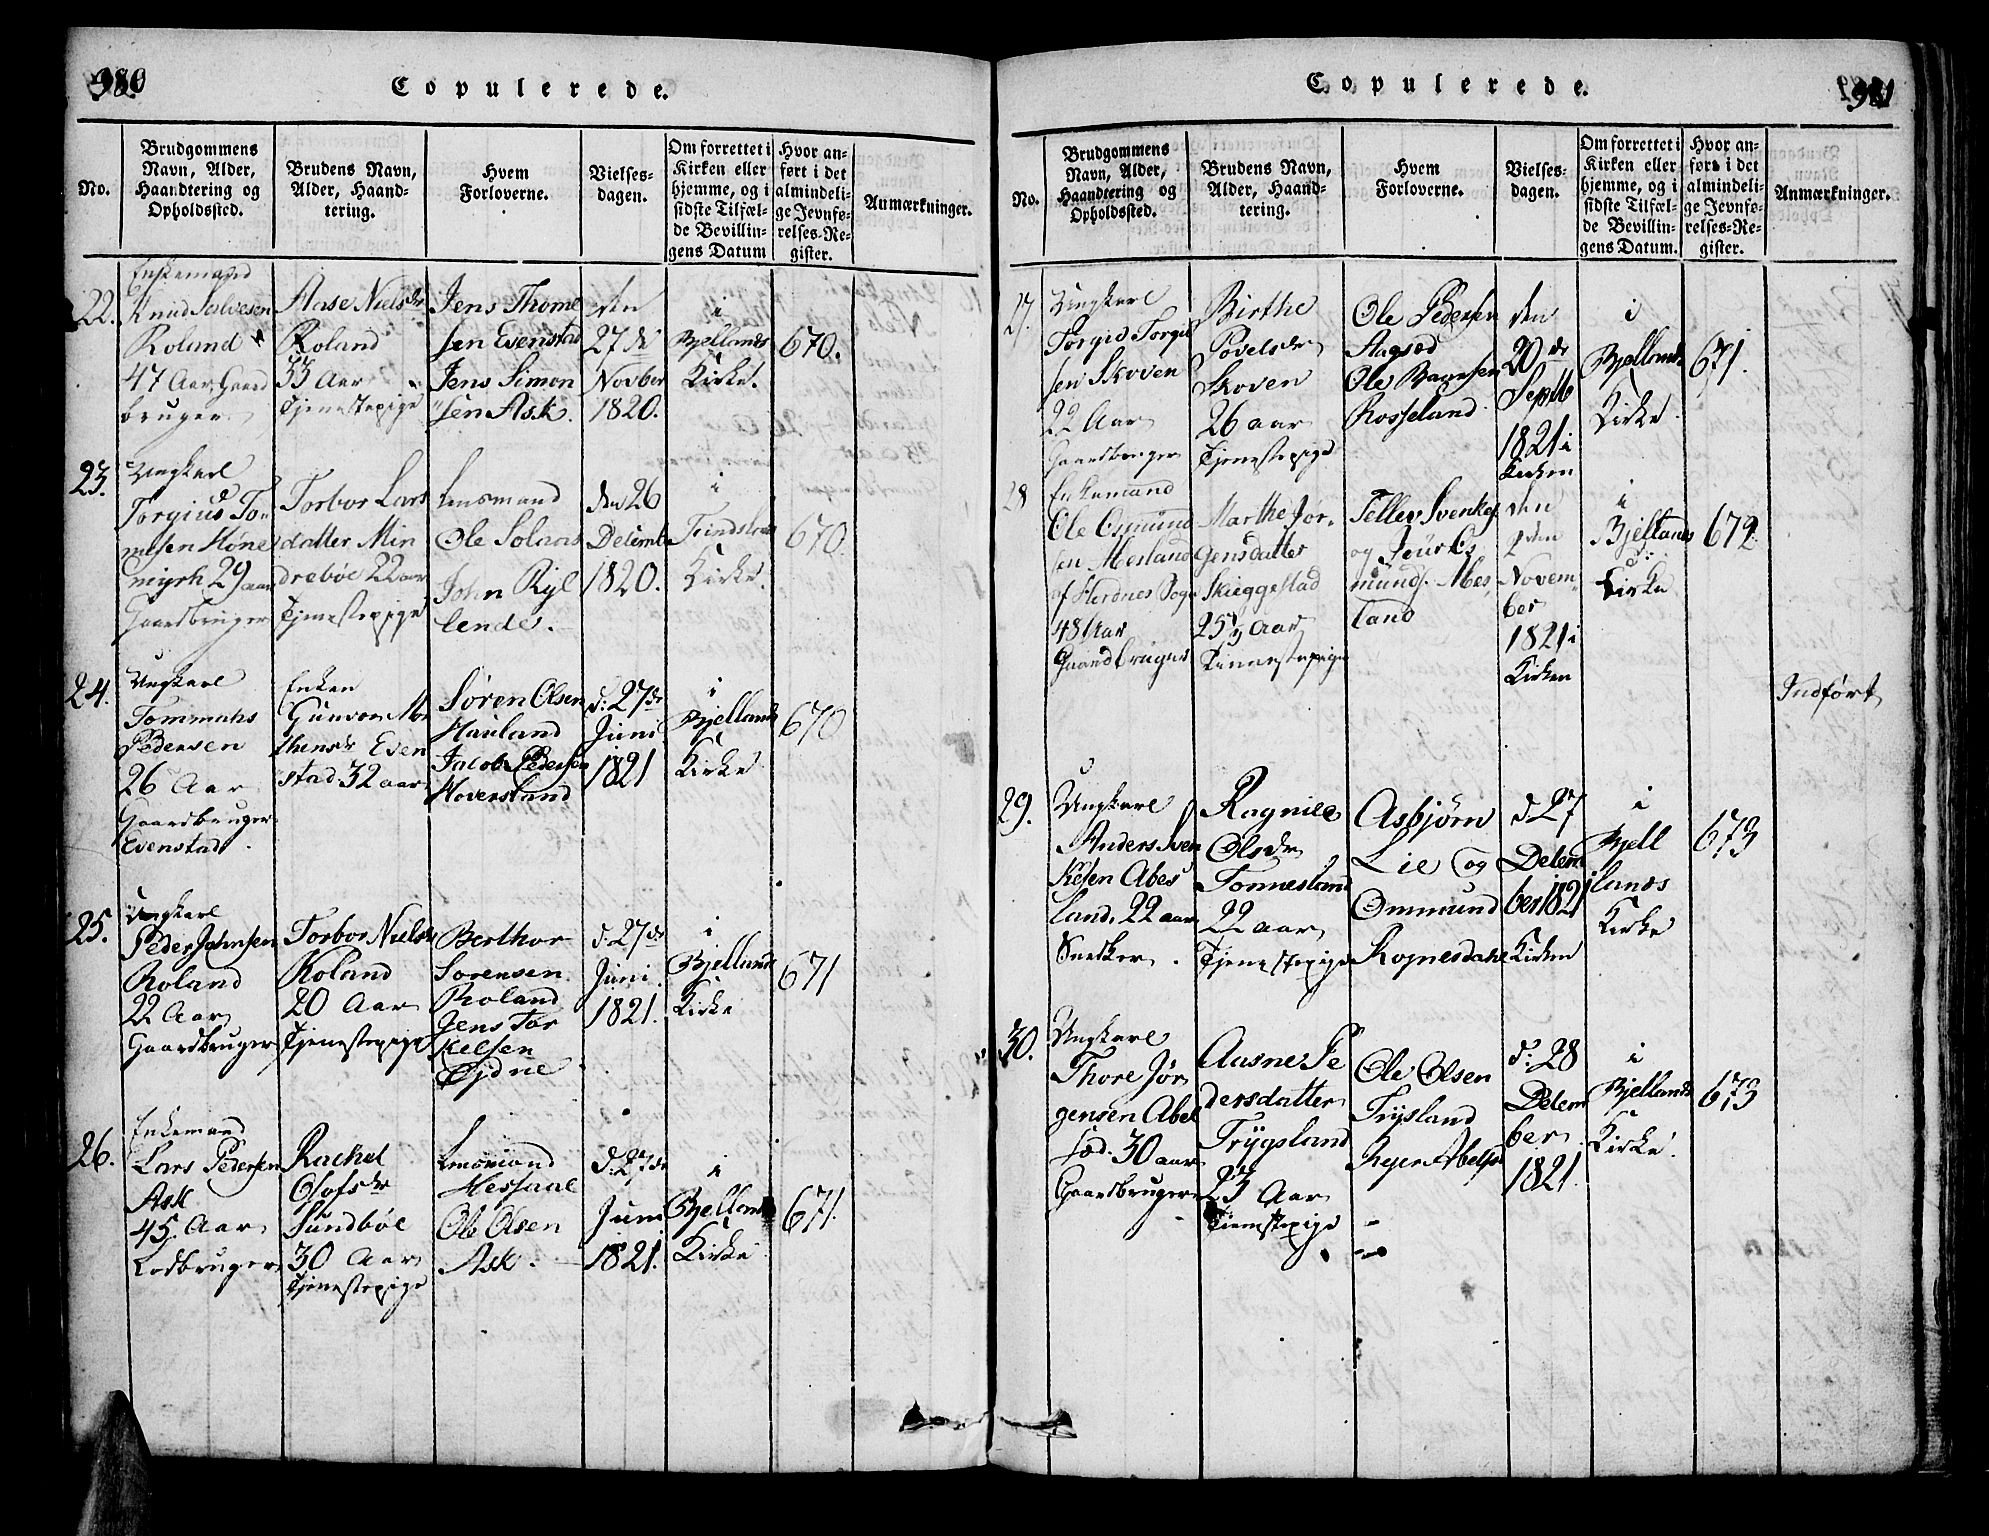 980
Copulerede.
No.
Brudgommens
Navn, Alder,
Haandtering og
Opholdssted.
Brudens Navn,
Alder, Haand-
tering.
Hvem
Forloverne.
Vielses-
dagen.
Om forrettet i
Kirken eller
hjemme, og i
sidste Tilfæl-
de Bevillin-
gens Datum
Hvor an-
ført i det
almindeli-
ge Jevnfø-
relses-Re-
gister.
Anmærkninger.
22.
Enkemand
Knud Salvesen
Roland
47 Aar Gaard
bruger
Aase Nielsdr
Roland
33 Aar
Tjenestepige
Jens Thome
sen Evenstad
Jens Simon
sen Ask.
den
27de
Novber
1820.
i
Bjellands
Kirke.
670.
23.
Ungkarl
Torgius To
mesen Høne
myrh 29 aar
Gaardbruger
Torbor Lars
datter Min
drebøe 22 aar
Tjenestepige
Lensmand
Ole Solaas
John Kyl
lende.
den 26
Decemb
1820.
i
Kirke.
670.
24.
Ungkarl
Tommahs
Pedersen
26 Aar
Gaardbruger
Evenstad.
Enken
Gunvor Mo
thensdr Even
stad 32 aar
Søren Olsen
Hauland
Jacob Pedersen
Hoversland
d: 27de
Juni
1821
i
Bjellands
Kirke
670
25.
Ungkarl
Peder Johnsen
Roland
22 Aar
Gaardbruger
Torbor Nielsdr
Roland
20 Aar
Tjenestepige
Berthor
Sorensen
Roland
Jens Tor
kelsen
Øjdne
d: 27de
Juni
1821.
i
Bjellands
Kirke
671
26.
Enkemand
Lars Pedersen
Ask
45 Aar
Lodbruger
Rachel
Olofsdr
Sundbøe
30 Aar
Tjenestepige
Lensmand
Messaae
Ole Olsen
Ask.
d: 27de
Juni
1821.
i
Bjellands
Kirke
671.
981
Copulerede.
No.
Brudgommens
Navn, Alder,
Haandtering og
Opholdssted.
Brudens Navn,
Alder, Haand-
tering.
Hvem
Forloverne.
Vielses-
dagen.
Om forrettet i
Kirken eller
hjemme, og i
sidste Tilfæl-
de Bevillin-
gens Datum.
Hvor an-
ført i det
almindeli-
ge Jevnfø-
relses-Re-
gister.
Anmærkninger.
27.
Ungkarl
Torgid Torgid
sen Skoven
22 Aar
Gaardbruger
Birthe
Povelsdr
Skoven
26 aar
Tjenestepige
Ole Pedersen
Aagsæd
Ole Baarsen
Rosseland
den
20de
Septb
1821 i
Kirken
i
Bjellands
Kirke
671.
28
Enkemand
Ole Osmund
sen Mesland
48 Aar
Gaardbruger
Marthe Jør-
gensdatter
Skieggestad
25 Aar
Tienestepige
Tellev Svenkes
og
Mes
land
den
2den
Novem-
ber
1821 i
Kirken
i
Bjellands
Kirke
672.
Indført
29.
Ungkarl
Anders Sven
kesen Abes
land. 22 aar
Snedker
Ragnile
Olsdr
Tonnesland
22 aar
Tjenestepige
Asbjørn
Lie og
Ommund
Rognesdahl
d 27
Decem
ber 1821 i
Kirken
i
Bjell
lands
Kirke
673
30.
Ungkarl
Thore Jør
gensen Abel
sæd. 30 aar
Gaardbruger
Aasne Pe
dersdatter
Trygsland
23 Aar
Tienestepige
Ole Olsen
Trysland
d: 28
Decem
ber
1821.
i
Bjellands
Kirke.
673